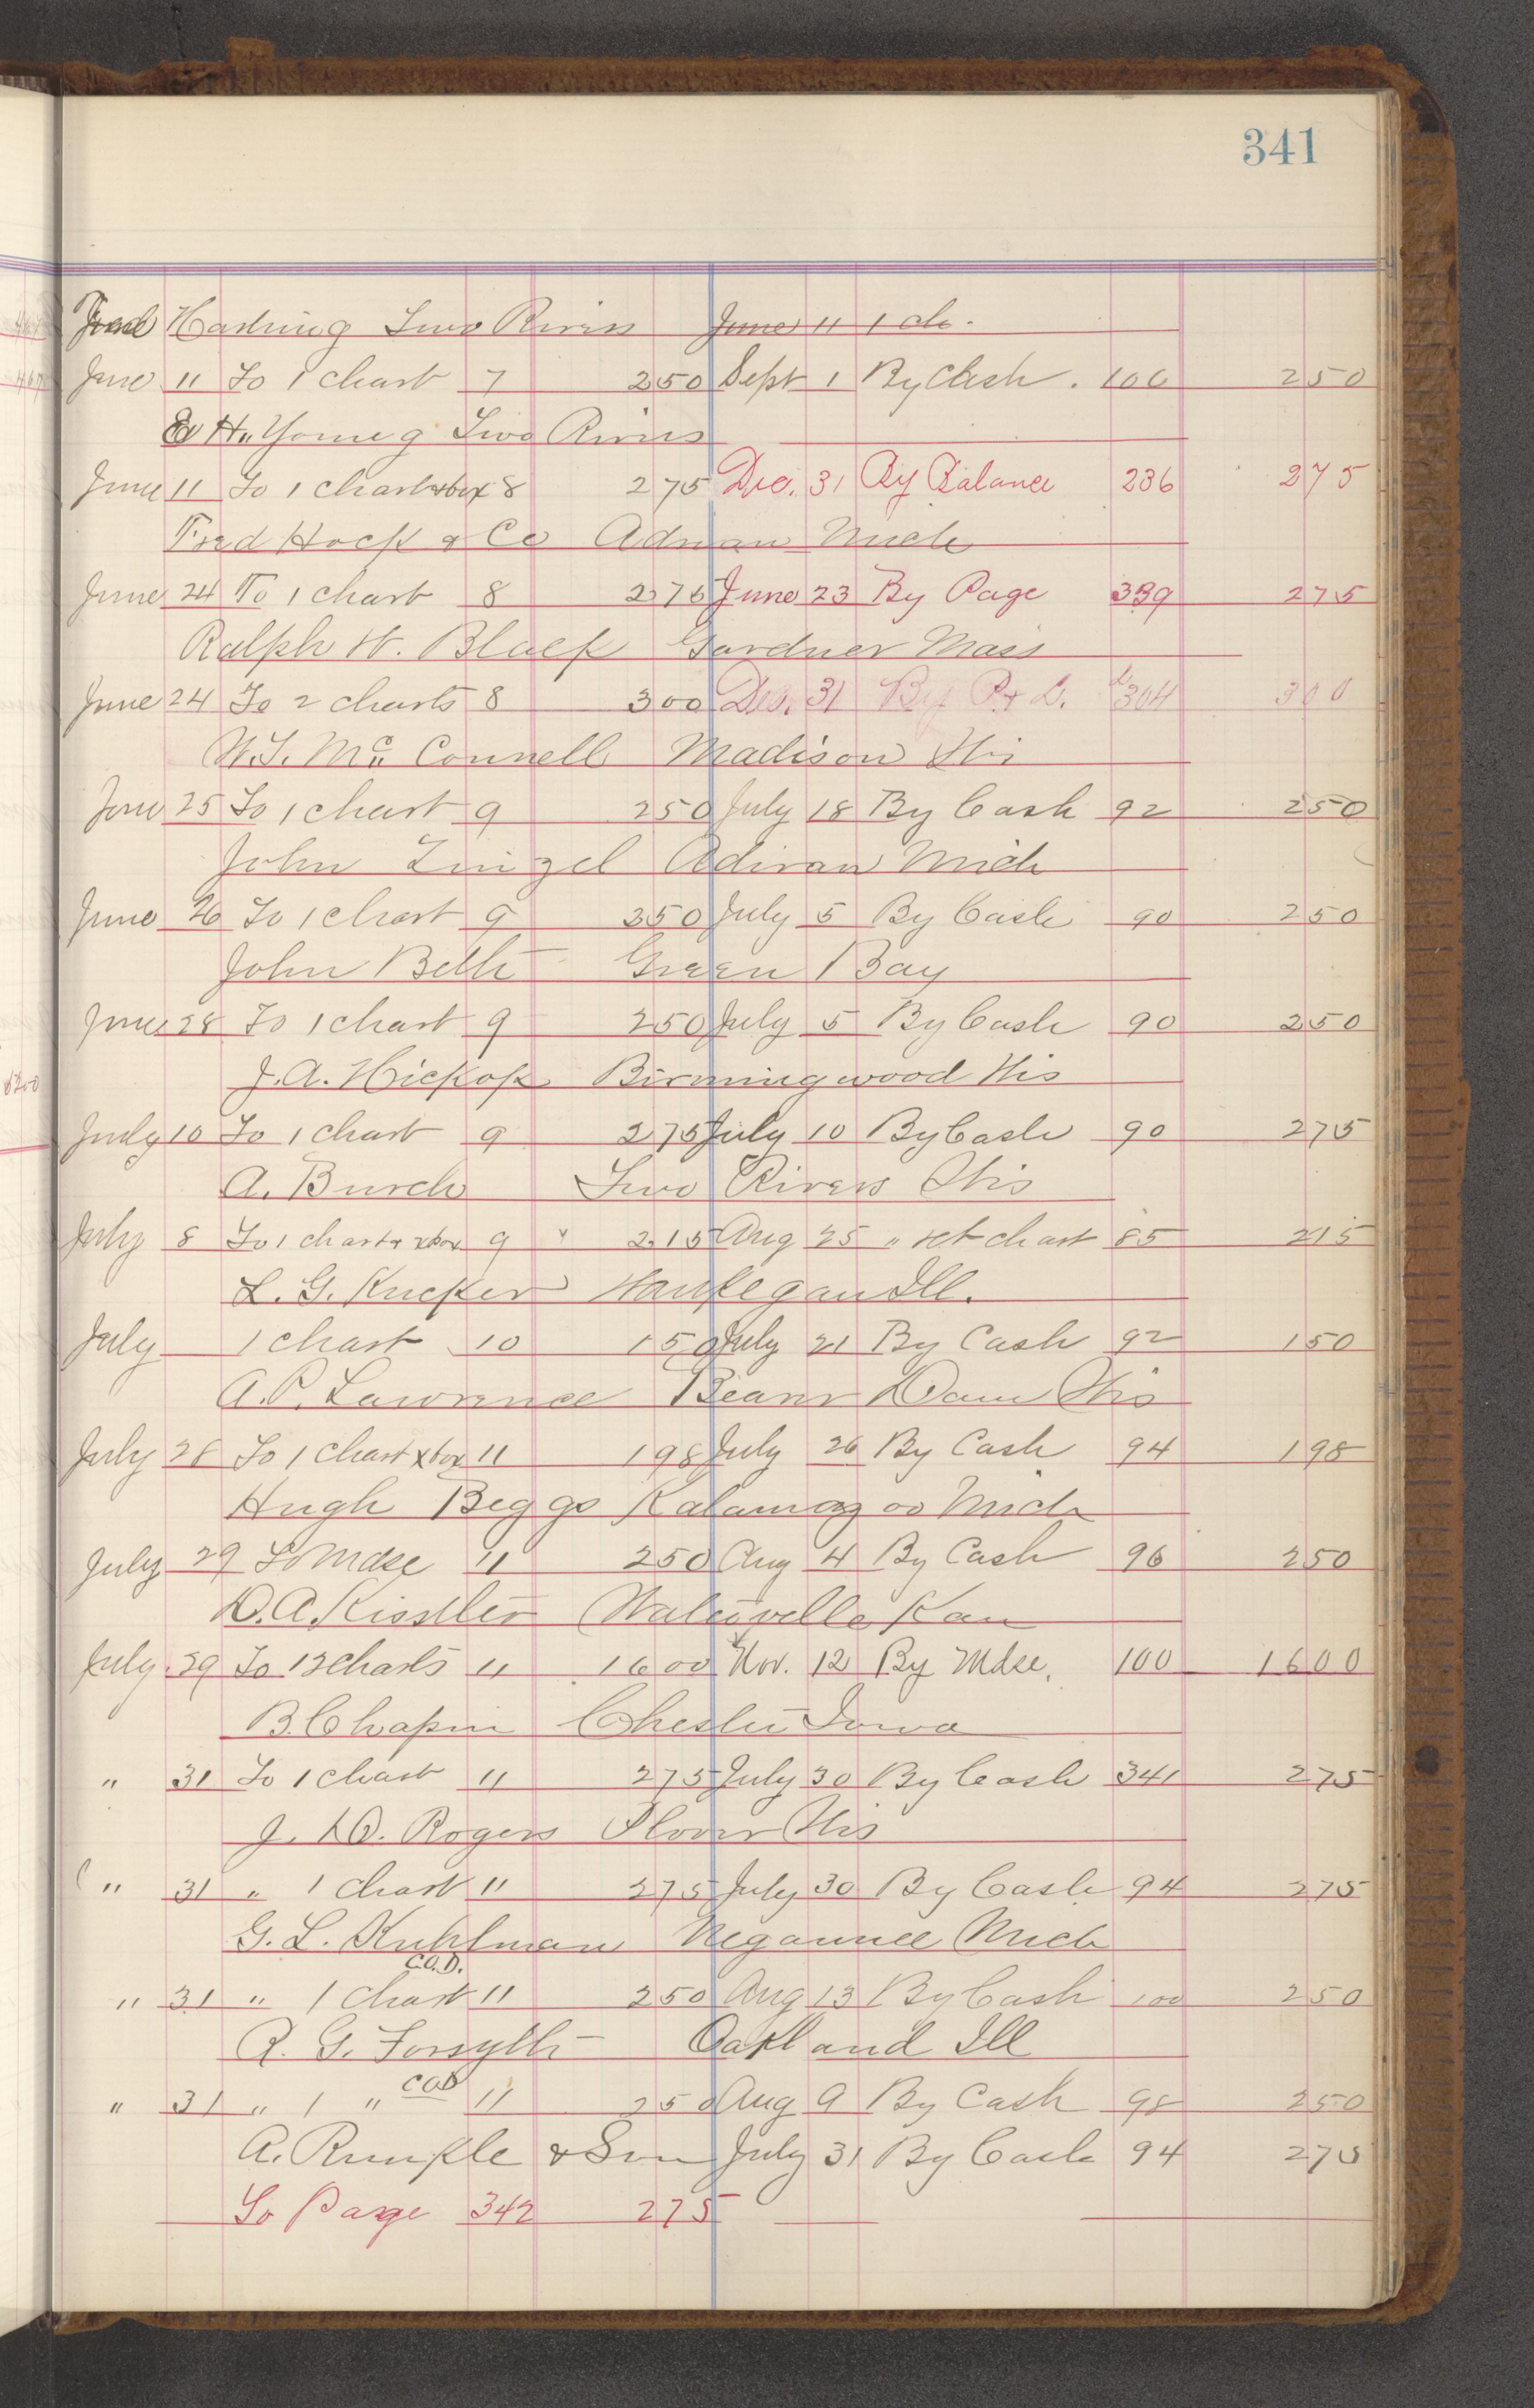 341
Fred Hartung Two Rivers June 11 1 ch.
June 11 To 1 chart 7 250 Sept 1 By Cash . 106 250
Ed H. Young Two Rivers
June 11 To 1 chart & box 8 275 Dec. 31 By Balance 236 275
Fred Hock & Co Adrian Mich
June 24 To 1 chart 8 275 June 23 By Page 339 275
Ralph W. Black Gardner Mass
June 24 To 2 charts 8 300 Dec. 31 By P & L. L304 300
W.T. McConnell Madison Wis
June 25 To 1 chart 9 250 July 18 By Cash 92 250
John Zingel Adiran Mich
June 26 To 1 chart 9 250 July 5 By Cash 90 250
John Beth Green Bay
June 28 To 1 chart 9 250 July 5 By Cash 90 250
J.A. Hickok Birmingwood Wis
July 10 To 1 chart 9 275 July 10 By Cash 90 275
A. Burch Two Rivers Wis
July 8 To 1 chart & box 9 " 215 Aug 25 " ret chart 85 215
L. G. Kucker Waukegan Ill.
July 1 chart 10 150 July 21 By Cash 92 150
A.P. Lawrence Beaver Dam Wis
July 28 To 1 chart & box 11 198 July 26 By Cash 94 198
Hugh Beggs Kalamazoo Mich
July 29 To Mdse 11 250 Aug 4 By Cash 96 250
D.A. Kissller Waterville Kan
July 29 To 12 charts 11 1600 Nov. 12 By Mdse. 100 1600
B. Chapin Chester Iowa
" 31 To 1 chart 11 275 July 30 By Cash 341 275
J. D. Rogers Plover Wis
" 31 " 1 chart 11 275 July 30 By Cash 94 275
G. L. Kuhlman Negaunee Mich
C.O.D.
" 31 " 1 chart 11 250 Aug 13 By Cash 100 250
R. G. Forsyth Oakland Ill
" 31 " 1 " COD 11 250 Aug 9 By Cash 98 250
A. Runkle & Son July 31 By Cash 94 275
To Page 342 275